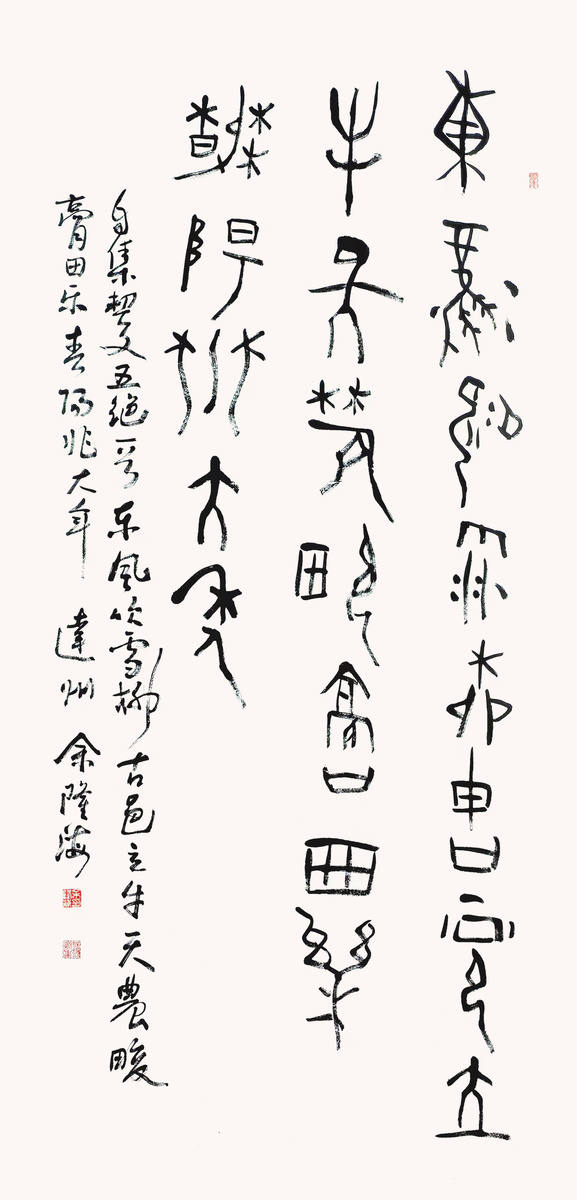 東風吹雪柳古邑立
牛天農畯高田樂
春陽兆大年
自集契文五绝一首 东風吹雪柳 古邑立牛天 農畯
膏田乐 春陽兆大年 達州 余隆海